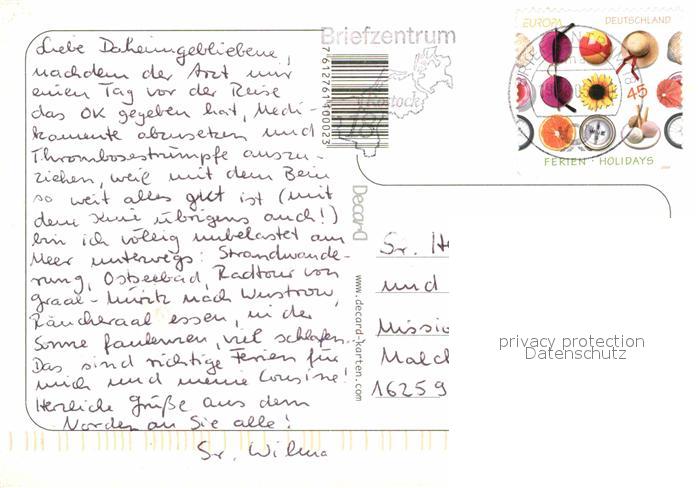 Liebe Daheimgebliebene,
nachdem der Arzt mir
einen Tag vor der Reise
das OK gegeben hat, Medi-
kamente abzusetzen und
Thrombosestrümpfe auszu-
ziehen, weil mit dem Bein
so weit alles gut ist (mit
dem Knie übrigens auch!)
bin ich völlig unbelastet am
Meer unterwegs: Strandwande-
rung, Ostseebad, Radtour von
Graal-Müritz nach Wustrow,
Räucheraal essen, in der
Sonne faulenzen, viel schlafen..
Das sind richtige Ferien für
mich und meine Cousine!
Herzliche Grüße aus dem
Norden an Sie alle!
Sr. Wilma
Briefzentrum
Rostock
18
7612761 000023
EUROPA DEUTSCHLAND
45
FERIEN · HOLIDAYS
DecarD
www.decard-karten.com
Sr. He
und
Missio
Malch
16259
privacy protection
Datenschutz